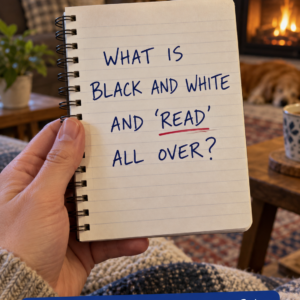 WHAT IS
BLACK AND WHITE
AND 'READ'
ALL OVER?